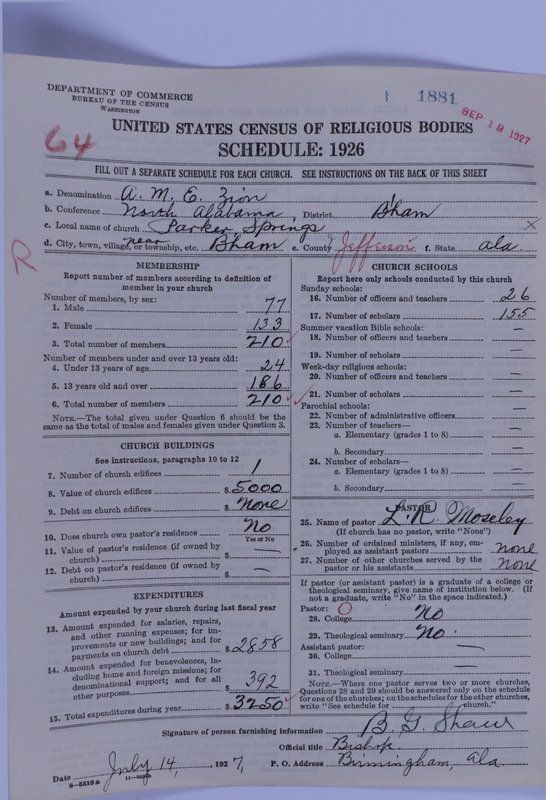 DEPARTMENT OF COMMERCE
BUREAU OF THE CENSUS
WASHINGTON
1881
SEP 19 1927
64
UNITED STATES CENSUS OF RELIGIOUS BODIES
SCHEDULE: 1926
FILL OUT A SEPARATE SCHEDULE FOR EACH CHURCH. SEE INSTRUCTIONS ON THE BACK OF THIS SHEET
a. Denomination A. M. E. Zion
b. Conference North Alabama, District B'ham
c. Local name of church Parker Springs
d. City, town, village, or township, etc. near B'ham e. County Jefferson f. State Ala.
R
MEMBERSHIP
Report number of members according to definition of
member in your church
Number of members, by sex:
1. Male 77
2. Female 133
3. Total number of members 210
Number of members under and over 13 years old:
4. Under 13 years of age 24
5. 13 years old and over 186
6. Total number of members 210
NOTE.—The total given under Question 6 should be
same as the total of males and females given under Question 3.
CHURCH BUILDINGS
See instructions, paragraphs 10 to 12
7. Number of church edifices 1
8. Value of church edifices $ 5000
9. Debt on church edifices $ None
10. Does church own pastor's residence No
Yes or No
11. Value of pastor's residence (if owned by
church) $ —
12. Debt on pastor's residence (if owned by
church) $ —
EXPENDITURES
Amount expended by your church during last fiscal year
13. Amount expended for salaries, repairs,
and other running expenses; for im-
provements or new buildings; and for
payments on church debt $ 2858
14. Amount expended for benevolences, in-
cluding home and foreign missions; for
denominational support; and for all
other purposes 392
15. Total expenditures during year $ 3250
CHURCH SCHOOLS
Report here only schools conducted by this church
Sunday schools:
16. Number of officers and teachers 26
17. Number of scholars 155
Summer vacation Bible schools:
18. Number of officers and teachers —
19. Number of scholars —
Week-day religious schools:
20. Number of officers and teachers —
21. Number of scholars —
Parochial schools:
22. Number of administrative officers —
23. Number of teachers—
a. Elementary (grades 1 to 8) —
b. Secondary —
24. Number of scholars—
a. Elementary (grades 1 to 8) —
b. Secondary —
PASTOR
25. Name of pastor L. R. Moseley
(If church has no pastor, write "None")
26. Number of ordained ministers, if any, em-
ployed as assistant pastors none
27. Number of other churches served by the
pastor or his assistants None
If pastor (or assistant pastor) is a graduate of a college or
theological seminary, give name of institution below. (If
not a graduate, write "No" in the space indicated.)
Pastor: O
28. College No
29. Theological seminary No.
Assistant pastor:
30. College —
31. Theological seminary —
NOTE.—Where one pastor serves two or more churches,
Questions 28 and 29 should be answered only on the schedule
for one of the churches; on the schedules for the other churches,
write "See schedule for church."
Signature of person furnishing information B. G. Shaw
Official title Bishop.
Date July 14, 1927, P. O. Address Birmingham, Ala
8—5318a